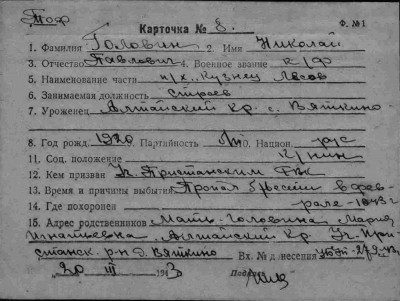 Карточка № 8. Ф. №1
1. Фамилия Головин 2. Имя Николай
3. Отчество Павлович 4. Воинское звание к/ф
5. Наименование части
6. Занимаемая должность
7. Уроженец Алтайский Кр. с. Вяткино
8. Год рожд. 1920 Партийность 10. Национ. рус
11. Соц. положение
12. Кем призван Уч. Пристанским РВК
13. Время и причины выбытия Пропал б/вести в фев-
14. Где похоронен рале - 1943 г
15. Адрес родственников Мать - Головина Мария
Игнатьевна, Алтайский Кр. Уч. При-
станск. р-н д. Вяткино Вх. № донесения
30 III 1943 Подпись